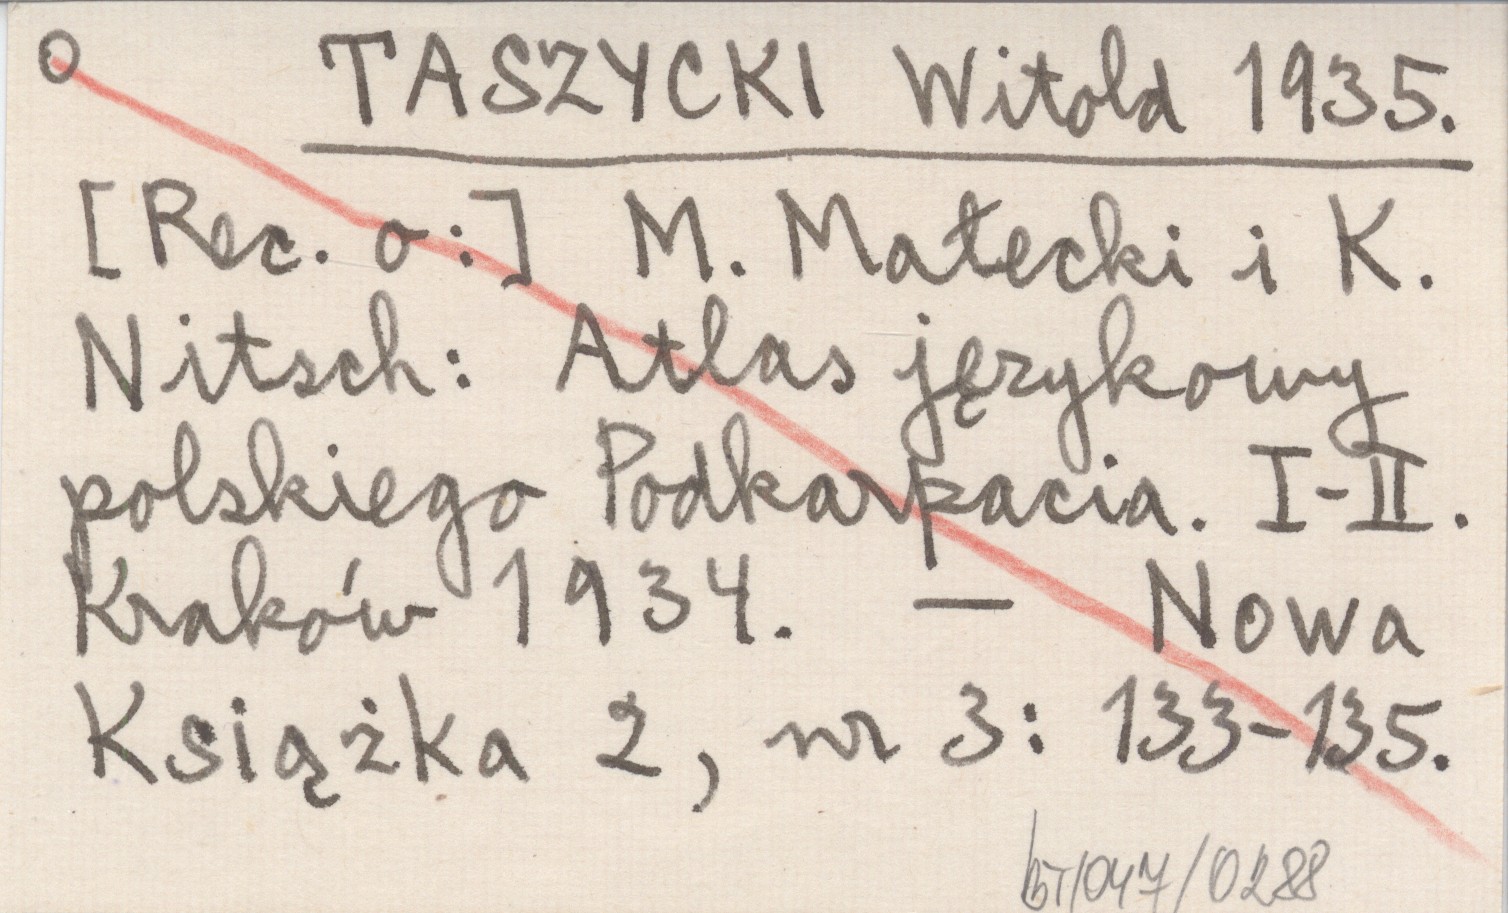 O TASZYCKI Witold 1935.
[Rec. o:] M. Małecki i K.
Nitsch: Atlas językowy
polskiego Podkarpacia. I-II.
Kraków 1934. — Nowa
Książka 2, nr 3: 133-135.
BT/047/0288